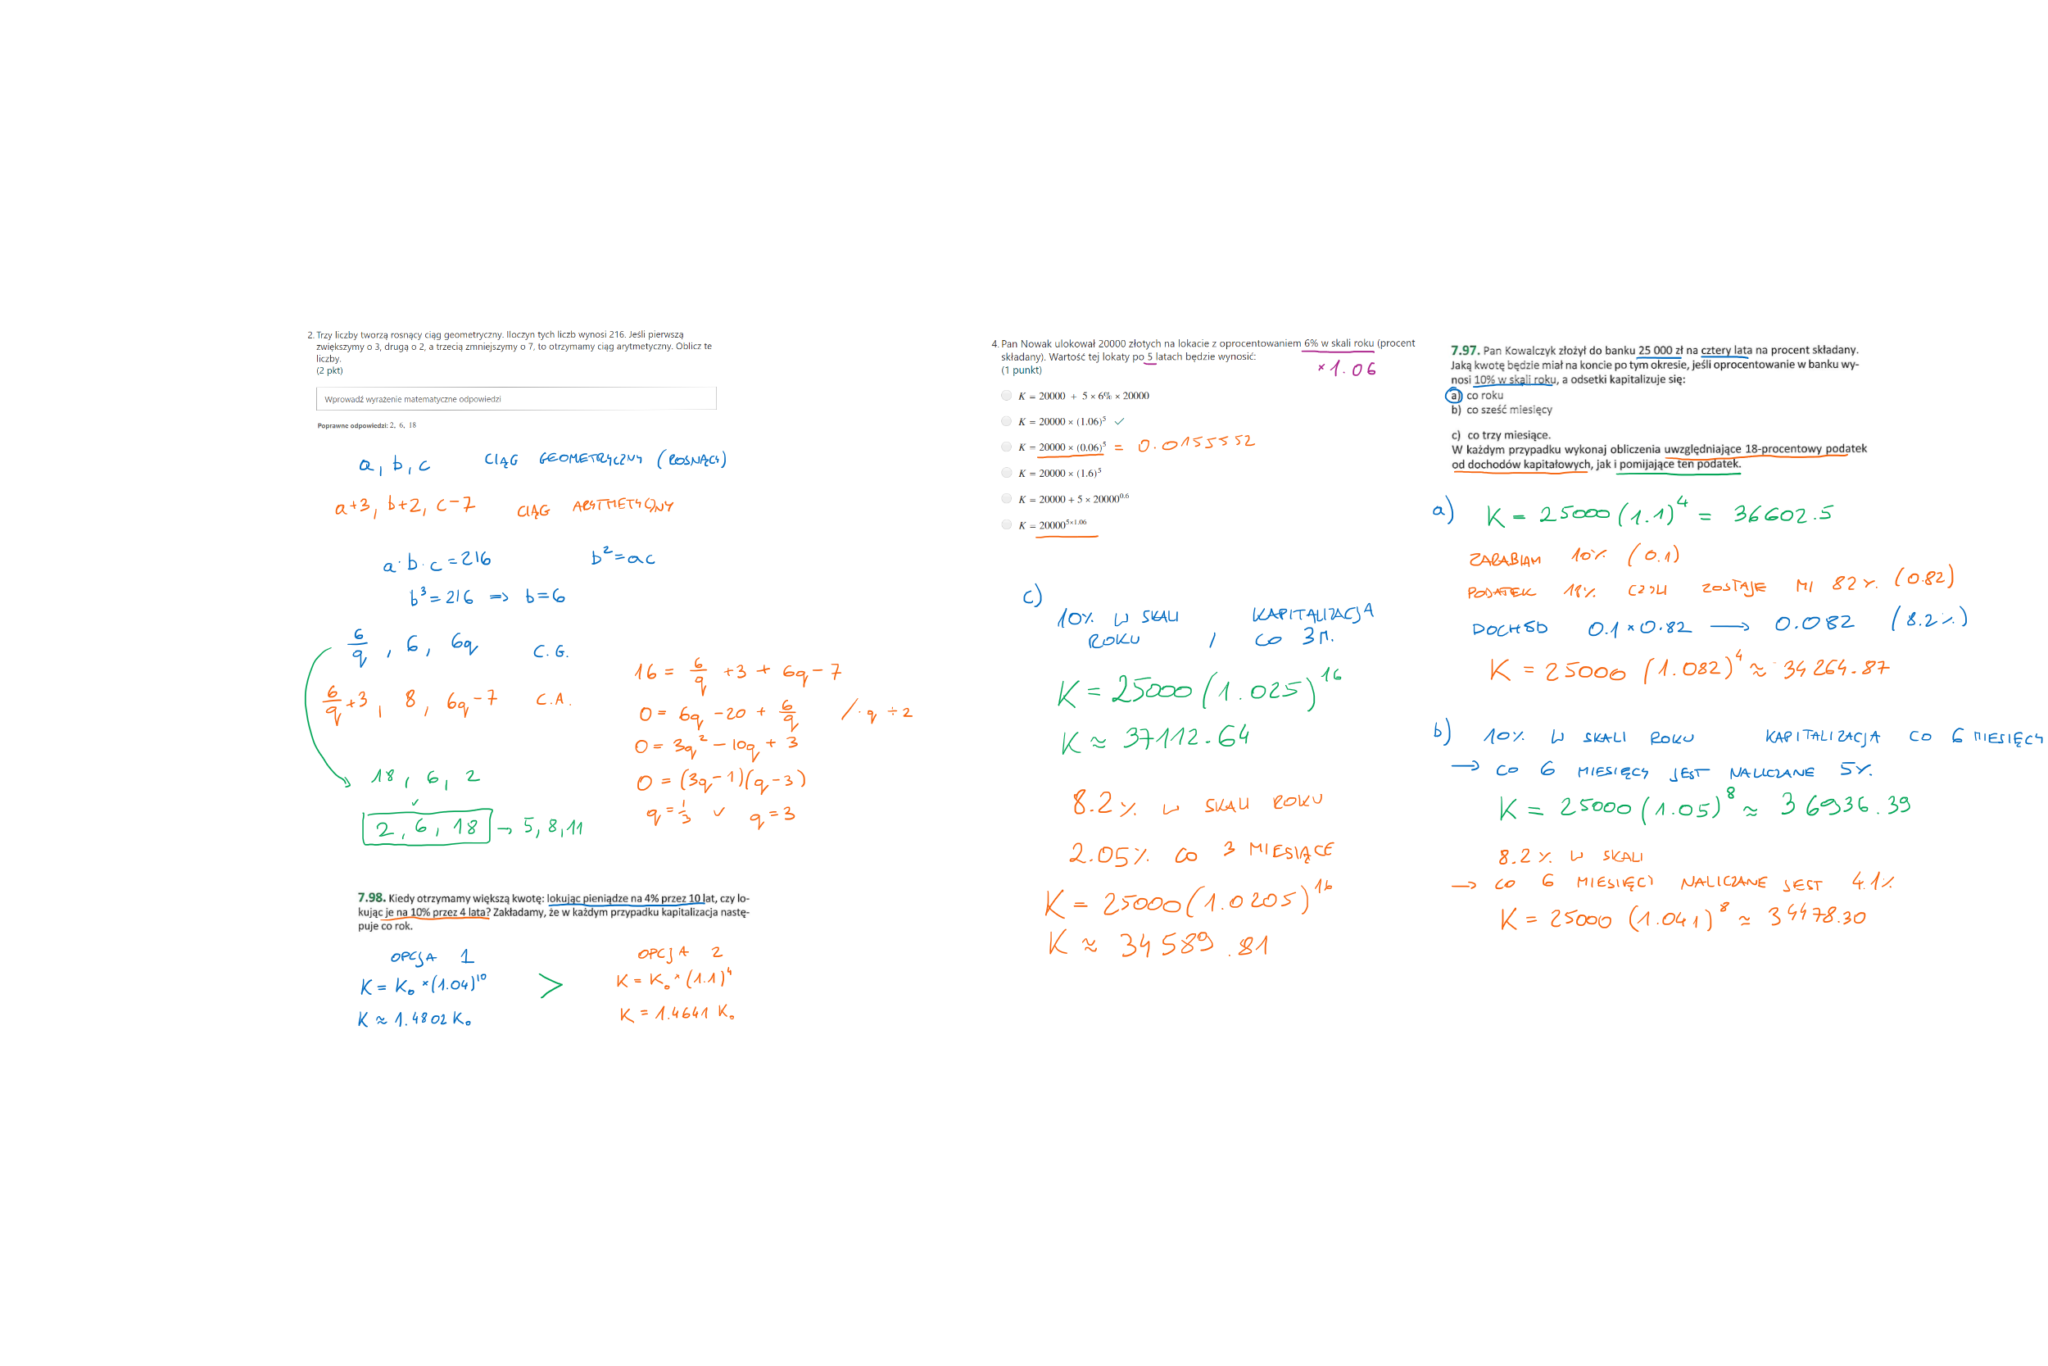 2. Trzy liczby tworzą rosnący ciąg geometryczny. Iloczyn tych liczb wynosi 216. Jeśli pierwszą
zwiększymy o 3, drugą o 2, a trzecią zmniejszymy o 7, to otrzymamy ciąg arytmetyczny. Oblicz te
liczby.
(2 pkt)
Wprowadź wyrażenie matematyczne odpowiedzi
Poprawne odpowiedzi: 2, 6, 18
a, b, c CIĄG GEOMETRYCZNY (ROSNĄCY)
a+3, b+2, c-7 CIĄG ARYTMETYCZNY
a·b·c = 216 b²=ac
b³=216 => b=6
6/q, 6, 6q C.G.
6/q+3, 8, 6q-7 C.A.
18, 6, 2
✓
2, 6, 18 → 5, 8, 11
16 = 6/q +3 + 6q - 7
0 = 6q - 20 + 6/q /·q ÷2
0 = 3q² - 10q + 3
0 = (3q-1)(q-3)
q = 1/3 ∨ q = 3
7.98. Kiedy otrzymamy większą kwotę: lokując pieniądze na 4% przez 10 lat, czy lo-
kując je na 10% przez 4 lata? Zakładamy, że w każdym przypadku kapitalizacja nastę-
puje co rok.
OPCJA 1 OPCJA 2
K = K₀ × (1.04)¹⁰ > K = K₀ × (1.1)⁴
K ≈ 1.4802 K₀ K = 1.4641 K₀
4. Pan Nowak ulokował 20000 złotych na lokacie z oprocentowaniem 6% w skali roku (procent
składany). Wartość tej lokaty po 5 latach będzie wynosić:
(1 punkt) ×1.06
K = 20000 + 5 × 6% × 20000
K = 20000 × (1.06)⁵ ✓
K = 20000 × (0.06)⁵ = 0.0155552
K = 20000 × (1.6)⁵
K = 20000 + 5 × 20000⁰·⁶
K = 20000⁵ˣ¹·⁰⁶
c)
10% W SKALI ROKU, KAPITALIZACJA CO 3 M.
K = 25000(1.025)¹⁶
K ≈ 37112.64
8.2% W SKALI ROKU
2.05% CO 3 MIESIĄCE
K = 25000(1.0205)¹⁶
K ≈ 34589.81
7.97. Pan Kowalczyk złożył do banku 25 000 zł na cztery lata na procent składany.
Jaką kwotę będzie miał na koncie po tym okresie, jeśli oprocentowanie w banku wy-
nosi 10% w skali roku, a odsetki kapitalizuje się:
a) co roku
b) co sześć miesięcy
c) co trzy miesiące.
W każdym przypadku wykonaj obliczenia uwzględniające 18-procentowy podatek
od dochodów kapitałowych, jak i pomijające ten podatek.
a) K = 25000(1.1)⁴ = 36602.5
ZARABIAM 10% (0.1)
PODATEK 18% CZYLI ZOSTAJE MI 82% (0.82)
DOCHÓD 0.1 × 0.82 → 0.082 (8.2%)
K = 25000 (1.082)⁴ ≈ 34264.87
b) 10% W SKALI ROKU KAPITALIZACJA CO 6 MIESIĘCY
→ CO 6 MIESIĘCY JEST NALICZANE 5%.
K = 25000(1.05)⁸ ≈ 36936.39
8.2% W SKALI
→ CO 6 MIESIĘCY NALICZANE JEST 4.1%
K = 25000 (1.041)⁸ ≈ 34478.30